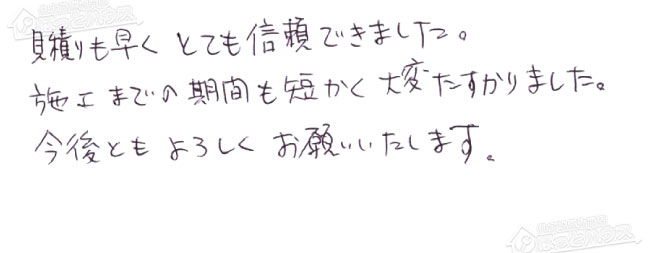 見積りも早く とても信頼できました。
施工までの期間も短かく大変たすかりました。
今後とも よろしく お願いいたします。